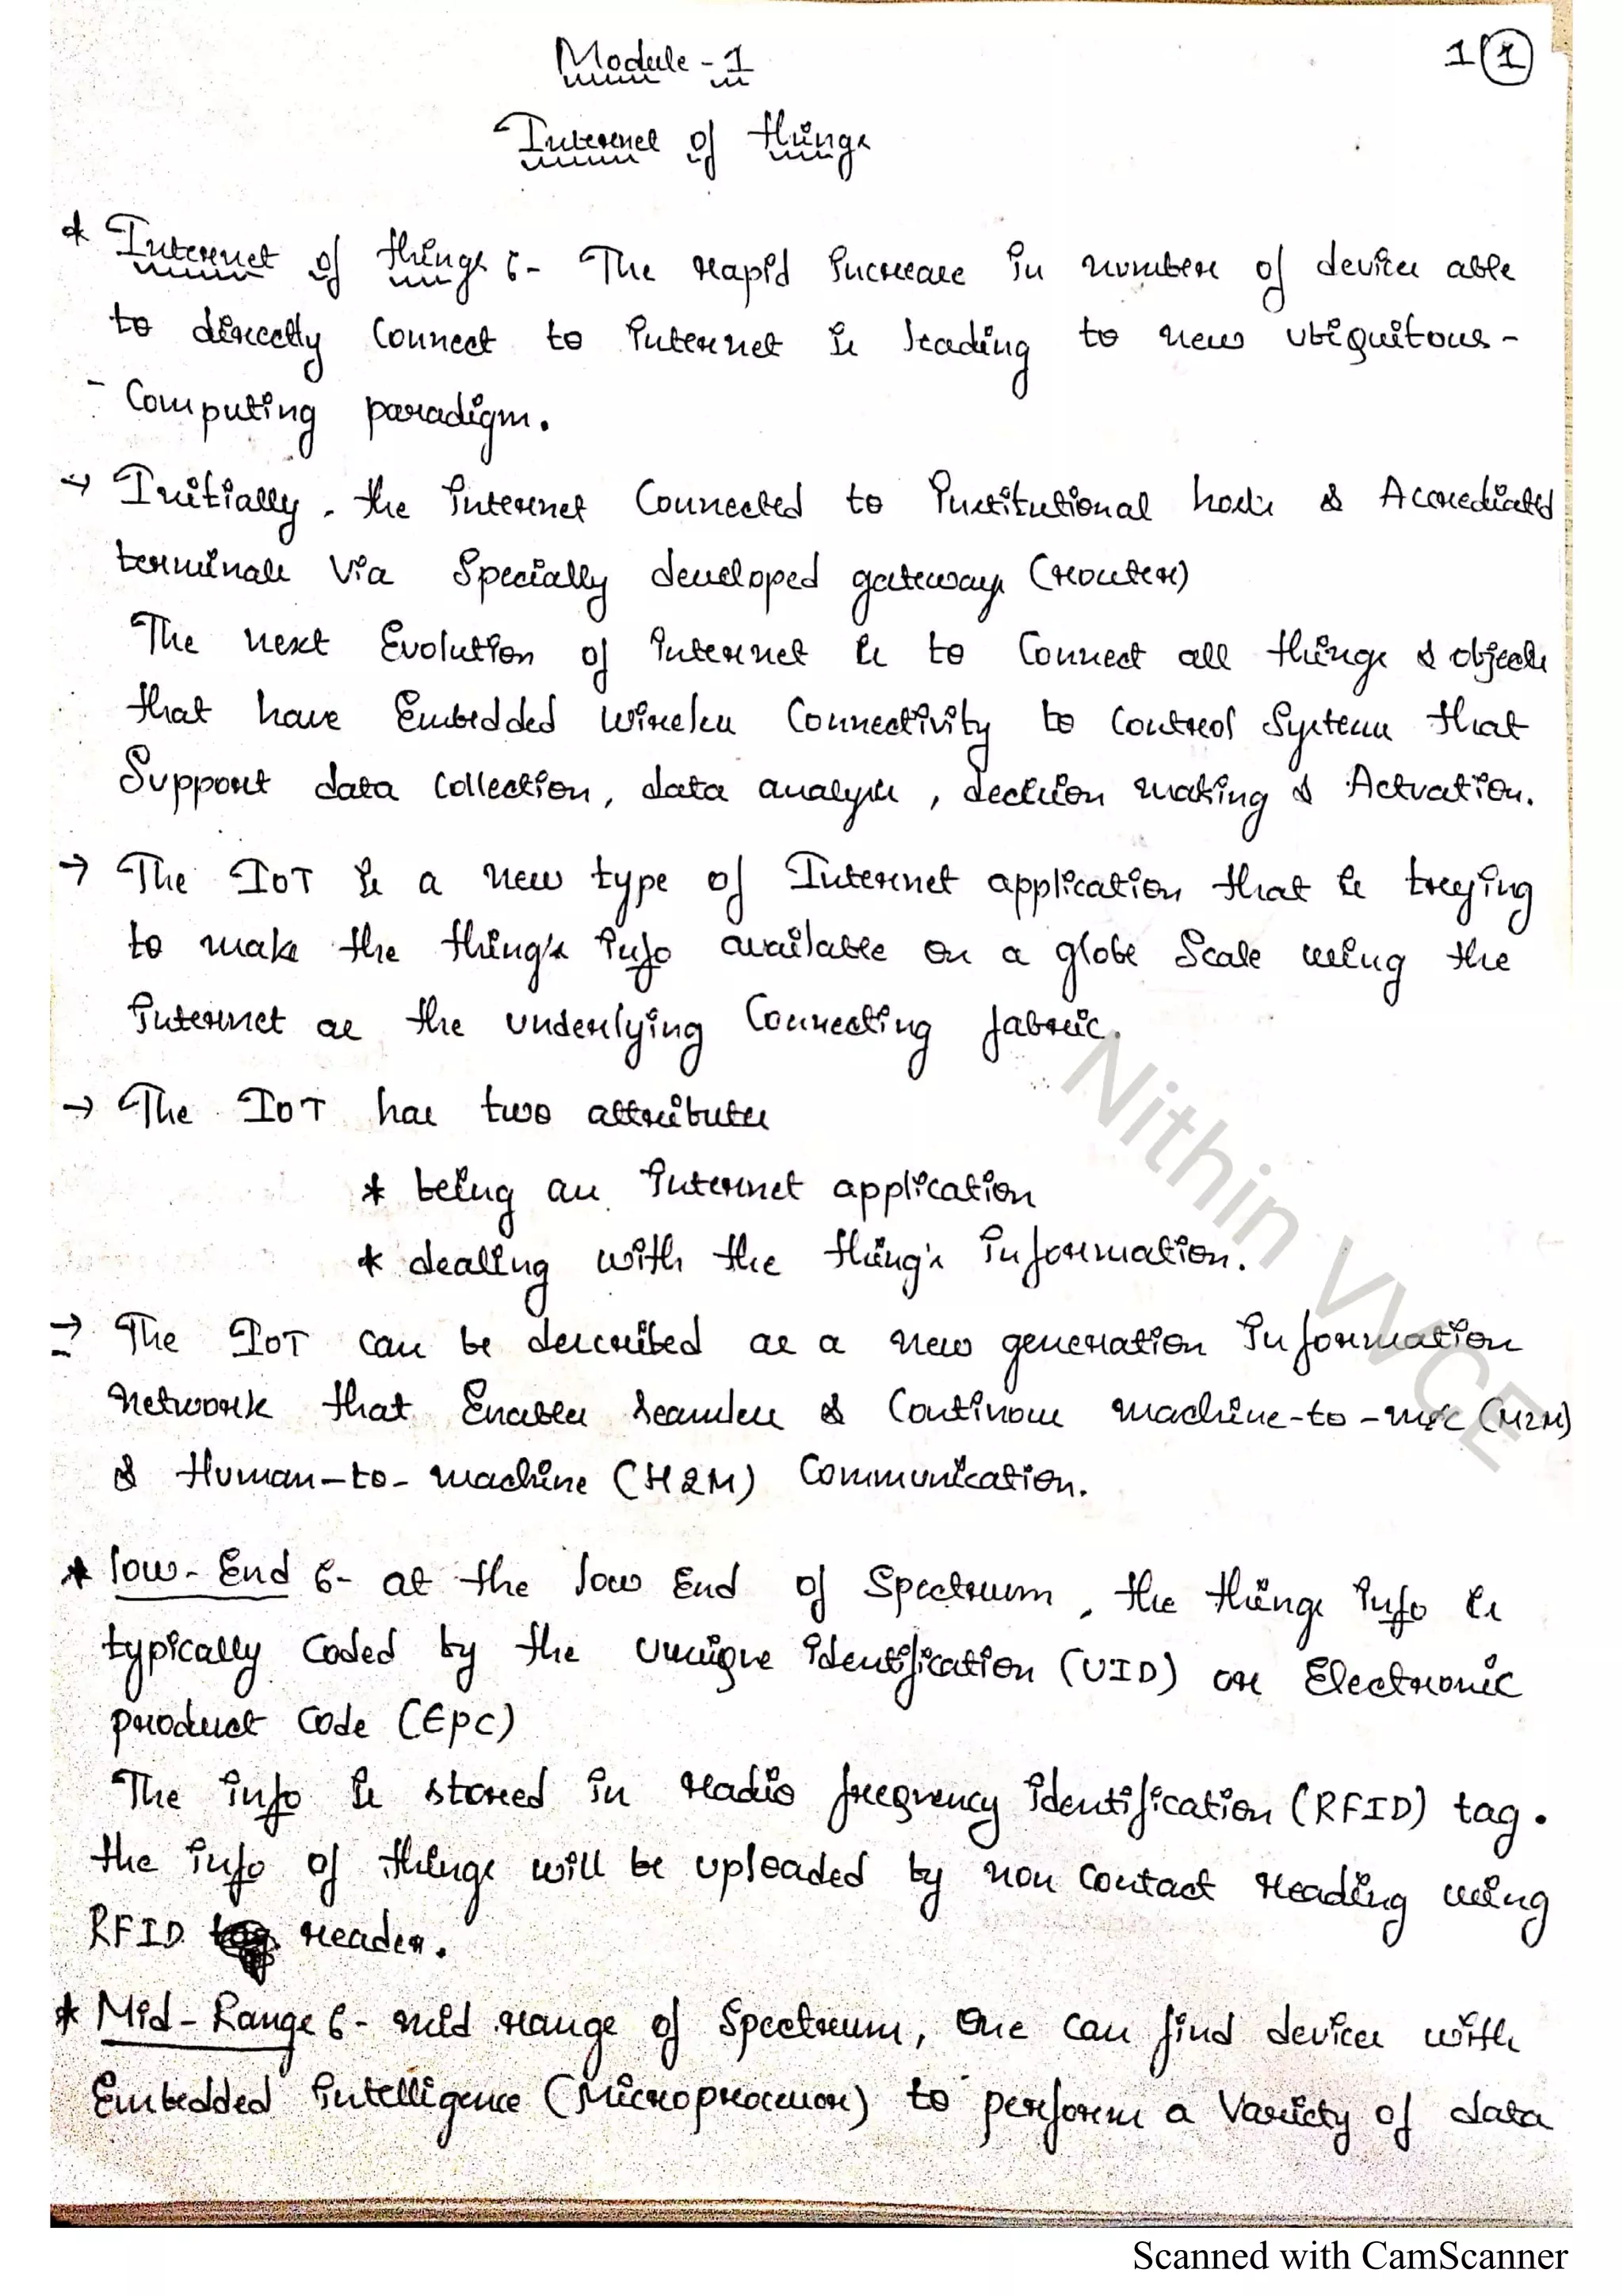 Module - 1
1 (1)
Internet of things
* Internet of things :- The rapid increase in number of devices able
to directly Connect to internet is leading to new ubiquitous -
- Computing paradigm.
→ Initially, the internet Connected to institutional hosts & Accrediated
terminals via Specially developed gateways (router)
The next Evolution of internet is to Connect all things & objects
that have Embedded wireless Connectivity to control Systems that
Support data Collection, data analysis, decision making & Actuation.
→ The IoT is a new type of Internet application that is trying
to make the thing's info available on a globe Scale using the
internet as the underlying Connecting fabric.
→ The IoT has two attributes
* being an internet application
* dealing with the thing's information.
→ The IoT can be described as a new generation information
network that Enables seamless & Continous machine-to-m/c (M2M)
& Human-to-machine (H2M) Communication.
* low-End :- at the low End of Spectrum, the things info is
typically coded by the unique identification (UID) or Electronic
product code (EPC)
The info is stored in radio frequency identification (RFID) tag.
the info of things will be uploaded by non contact reading using
RFID reader.
* Mid-Range :- mid range of Spectrum, One can find devices with
Embedded intelligence (Microprocessor) to perform a Variety of data
Nithin VVCE
Scanned with CamScanner